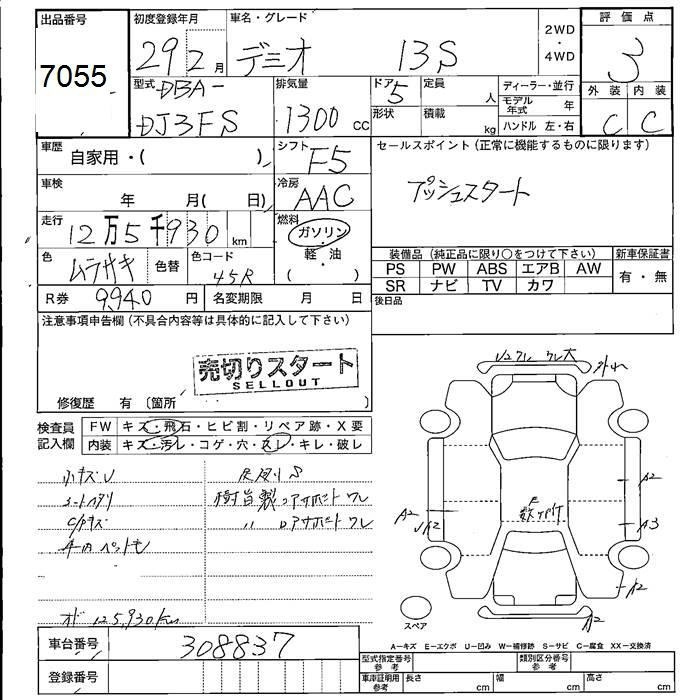 出品番号 初度登録年月 車名・グレード 評価点
7055 29 2月 デミオ 13S 2WD・4WD 3
型式 DBA- 排気量 ドア 5 定員 人 ディーラー・並行 外装 内装
DJ3FS 1300 cc 形状 積載 kg モデル年式 年 C C
ハンドル 左・右
車歴 自家用・( ) シフト F5 セールスポイント (正常に機能するものに限ります)
車検 年 月( 日) 冷房 AAC プッシュスタート
走行 12万5千930 km 燃料 ガソリン・軽油 ( )
色 ムラサキ 色替 色コード 45R
装備品 (純正品に限り○をつけて下さい) 新車保証書
PS PW ABS エアB AW 有・無
SR ナビ TV カワ
R券 9,940 円 名変期限 月 日 後日品
注意事項申告欄 (不具合内容等は具体的に記入して下さい)
売切りスタート
SELLOUT
修復歴 有 (箇所 )
検査員記入欄 FW キズ・飛石・ヒビ割・リペア跡・X要
内装 キズ・汚レ・コゲ・穴・スレ・キレ・破レ
小キズU
樹脂製
車内 ペット毛
オド 125,930km
A2
A2
A3
A2
A2
スペア
A-キズ E-エクボ U-凹み W-補修跡 S-サビ C-腐食 XX-交換済
車台番号 308837
登録番号
型式指定番号 参考 類別区分番号 参考
車庫証明用 参考 長さ cm 幅 cm 高さ cm